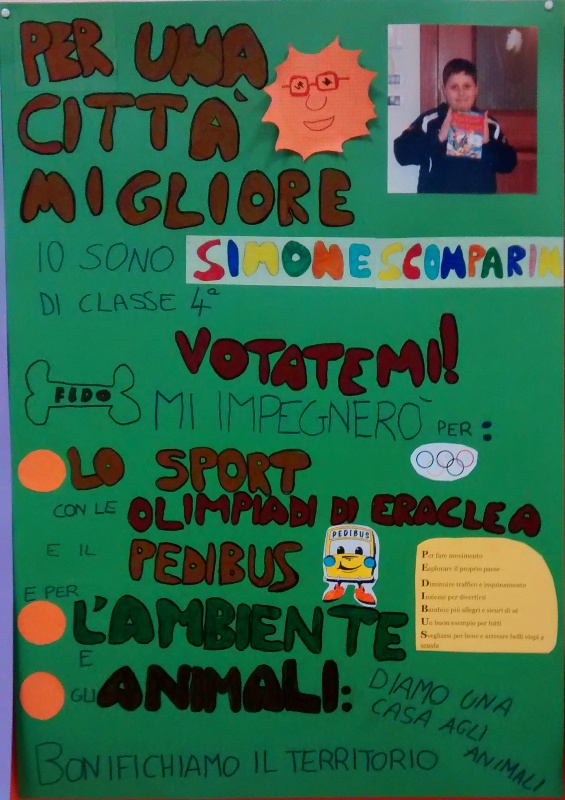 PER UNA
CITTÀ
MIGLIORE
IO SONO SIMONE SCOMPARIN
DI CLASSE 4ª
VOTATEMI!
FIDO
MI IMPEGNERÒ PER:
LO SPORT
CON LE OLIMPIADI DI ERACLEA
E IL PEDIBUS
PEDIBUS
Per fare movimento
Esplorare il proprio paese
Diminuire traffico e inquinamento
Insieme per divertirsi
Bambini più allegri e sicuri di sé
Un buon esempio per tutti
Svegliarsi per bene e arrivare belli vispi a
scuola
E PER
L'AMBIENTE
E
GLI ANIMALI:
DIAMO UNA
CASA AGLI
ANIMALI
BONIFICHIAMO IL TERRITORIO